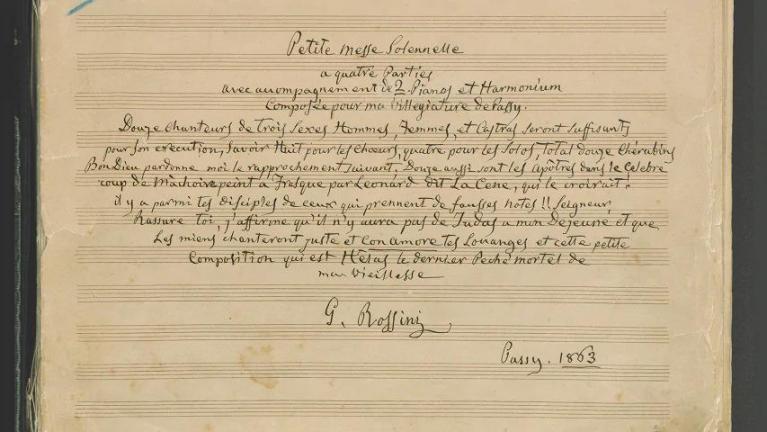 Petite messe Solennelle
a quatre Parties
avec accompagnement de 2 Pianos et Harmonium
Composée pour ma villégiature de Passy.
Douze chanteurs de Trois Sexes Hommes, Femmes, et Castras seront suffisants
pour son execution, Savoir Huit pour les Chœurs, quatre pour les Solos, total douze Chérubins
Bon Dieu pardonne moi le rapprochement suivant. Douze aussi sont les Apôtres dans le Celebre
coup de Mâchoire peint a Fresque par Léonard dit La Cène, qui le croirait!
il y a parmi tes disciples de ceux qui prennent de fausses notes!! Seigneur,
Rassure toi, j'affirme qu'il n'y aura pas de Judas a mon Déjeuné et que
Les miens chanteront juste et Con amore tes Louanges et cette petite
Composition qui est Hélas le dernier Péché mortel de
ma vieillesse
G. Rossini
Passy. 1863